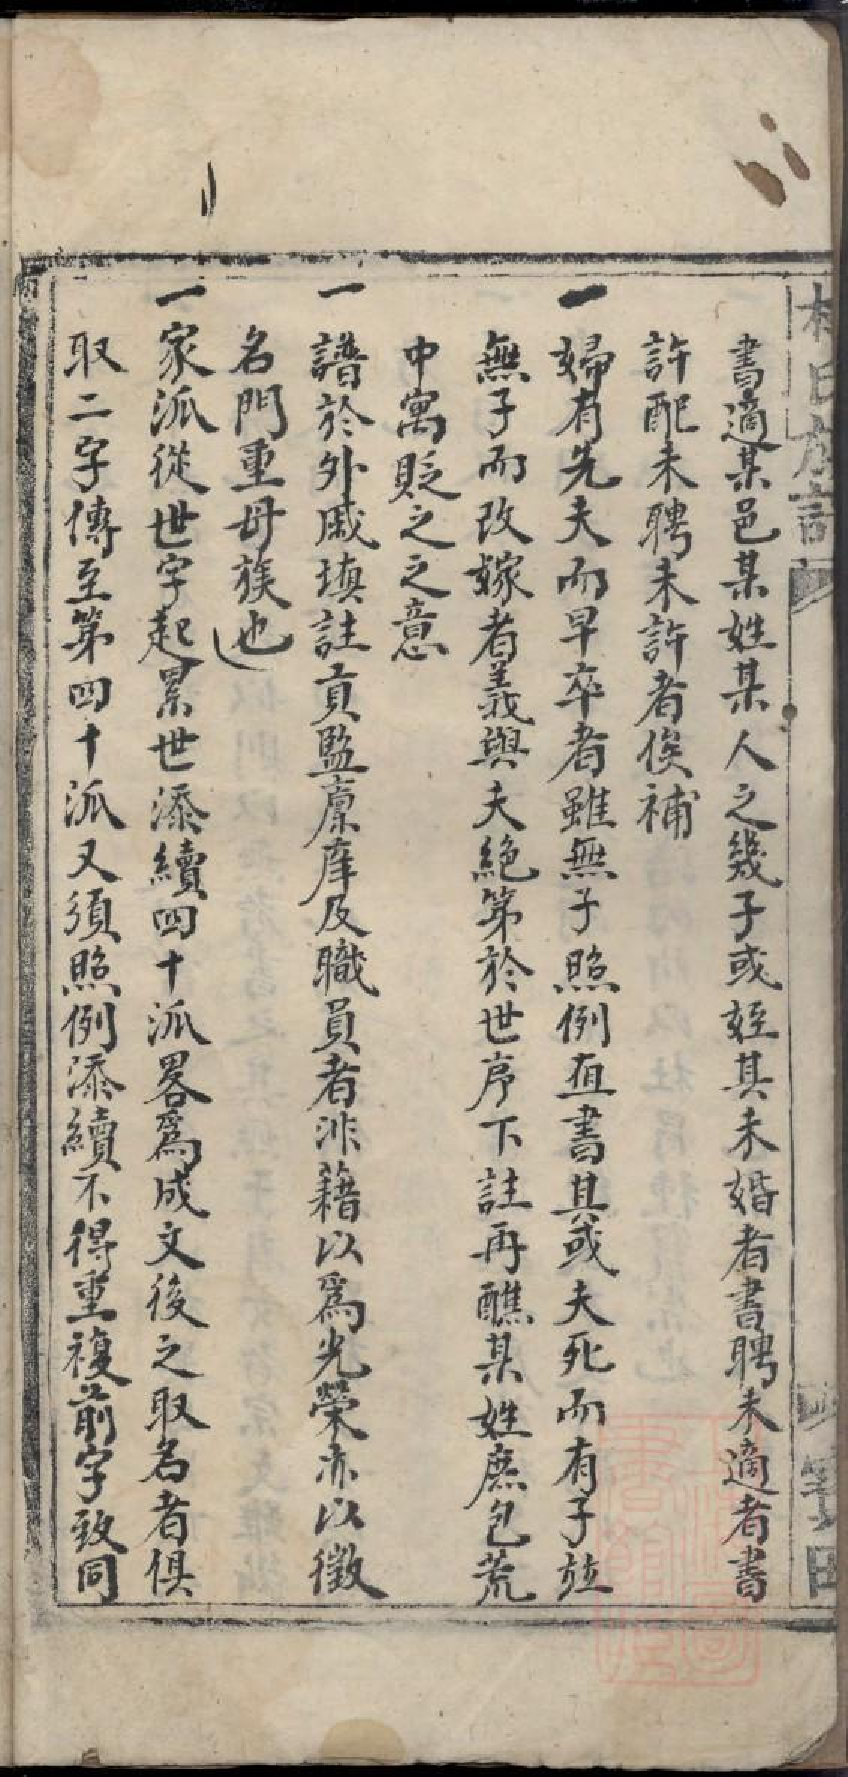 書適某邑某姓某人之幾子或姪其未婚者書聘未適者書
許配未聘未許者俟補
一婦有先夫而早卒者雖無子照例直書其或夫死而有子並
無子而改嫁者義與夫絕第於世序下註再醮某姓庶包荒
中寓貶之之意
一譜於外戚填註貢監廩庠及職員者非籍以爲光榮亦以徵
名門重母族也
一家派從世字起累世添續四十派畧爲成文後之取名者俱
取二字傳至第四十派又須照例添續不得重複前字致同